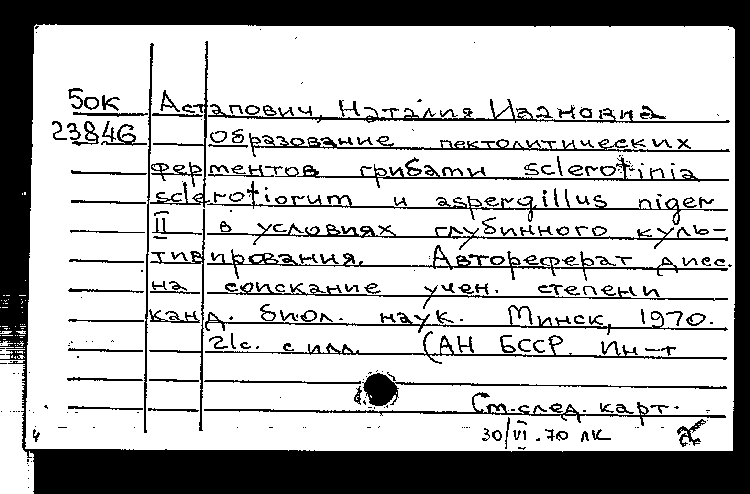 50К Астапович, Наталия Ивановна
23846 Образование пектолитических
ферментов грибами sclerotinia
sclerotiorum и aspergillus niger
II в условиях глубинного куль-
тивирования. Автореферат дисс.
на соискание учен. степени
канд. биол. наук. Минск, 1970.
21с. с илл. (АН БССР. Ин-т
См.след. карт.
30/VI.70 ЛК